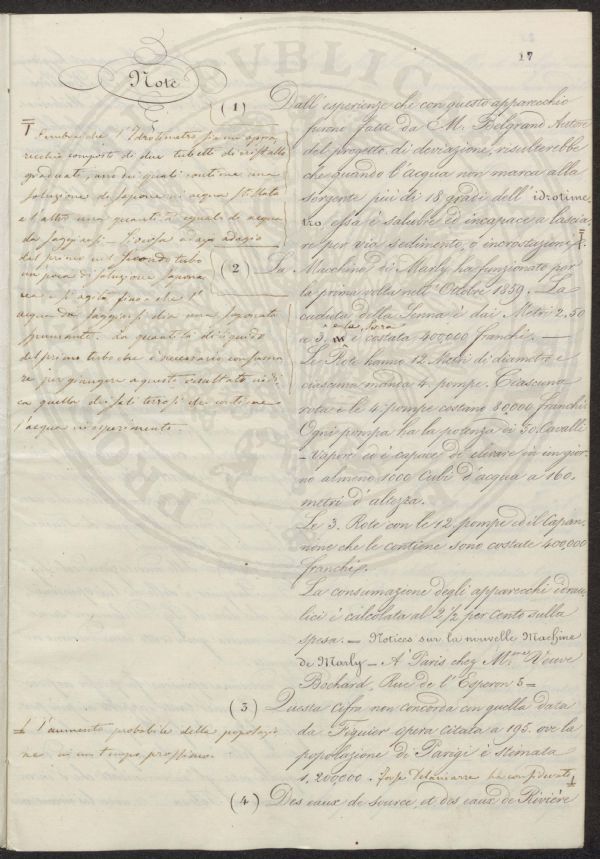 17
Note
(1) Dall'esperienze che con questo apparecchio
furono fatte da M. Belgrand Autore
del progetto di deviazione, risulterebbe
che quando l'Acqua non marca alla
sorgente più di 18 gradi dell'idrotime-
tro essa è salubre ed incapace a lascia-
re per via sedimento, o incrostazione
(2) La Macchina di Marly ha funzionato per
la prima volta nell'Ottobre 1859. La
caduta della Senna è dai Metri 2,50
a 3, è costata 400,000 franchi. —
Le Rote hanno 12 Metri di diametro e
ciascuna manda 4 pompe. Ciascuna
rota e le 4 pompe costano 80,000 franchi.
Ogni pompa ha la potenza di 30 Cavalli
-Vapore ed è capace di elevare in un gior-
no almeno 1000 Cubi d'acqua a 160.
metri d'altezza.
Le 3. Rote con le 12. pompe ed il Capan-
none che le contiene sono costate 400,000
franchi.
La consumazione degli apparecchi idrau-
lici è calcolata al 2 1/2 per cento sulla
spesa. — Notices sur la nouvelle Machine
de Marly — A Paris chez M.me Veuve
Bochard, Rue de l'Eperon 5 =
(3) Questa Cifra non concorda con quella data
da Figuier opera citata a 195. ove la
popolazione di Parigi è stimata
1,200,000. - forse Delamarre ha considerato
(4) Des eaux de source, et des eaux de Rivière
l'Idrotimetro sia un appa-
recchio composto di due tubetti di cristallo
graduati, uno dei quali contiene una
soluzione di sapone in acqua stillata
e l'altro una quantità eguale di acqua
da saggiarsi - adagio adagio
del primo nel secondo tubo
un poca di soluzione sapona-
cea e si agita fino a che l'
acqua da saggiarsi dia una saponata
spumante. La quantità di liquido
del primo tubo che è necessario consuma-
re per giungere a questo risultato indi-
ca quella dei sali terrosi che contiene
l'acqua in esperimento. -
l'aumento probabile della popolazio-
ne, in un tempo prossimo.